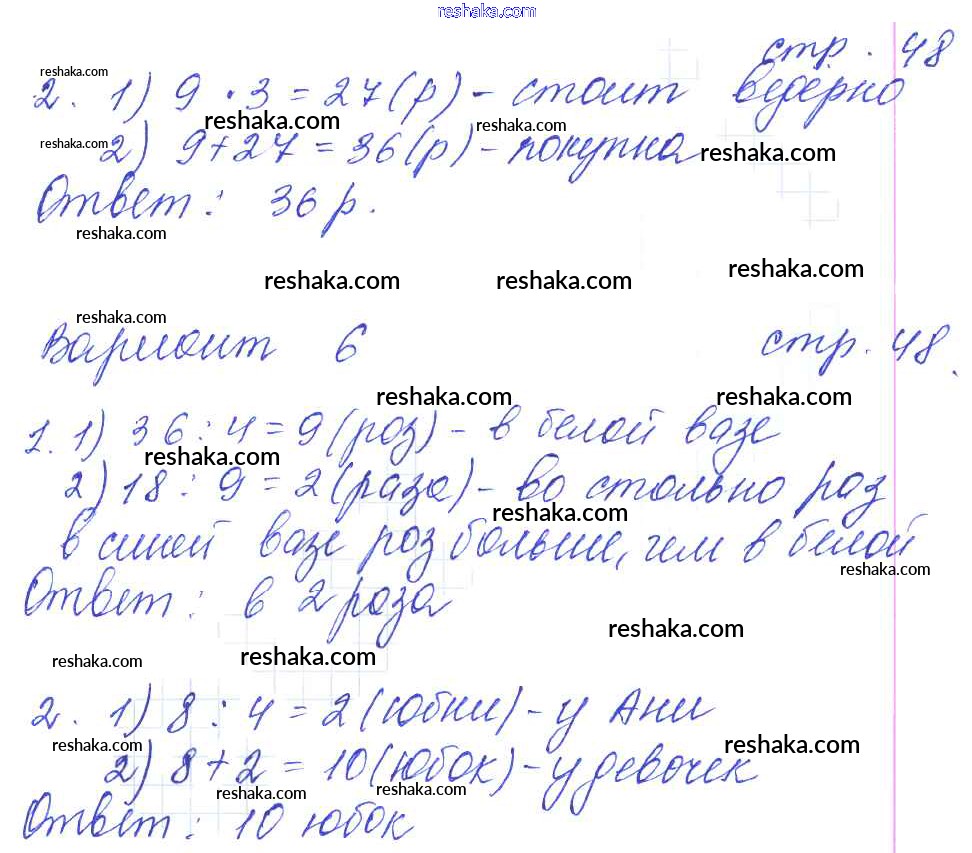 reshaka.com
стр. 48
reshaka.com
2. 1) 9 · 3 = 27 (р) - стоит ведёрко
reshaka.com reshaka.com
reshaka.com 2) 9 + 27 = 36 (р) - покупка reshaka.com
Ответ: 36 р.
reshaka.com
reshaka.com reshaka.com reshaka.com
reshaka.com
Вариант 6 стр. 48.
reshaka.com reshaka.com
1. 1) 36 : 4 = 9 (роз) - в белой вазе
reshaka.com
2) 18 : 9 = 2 (раза) - во столько раз
reshaka.com
в синей вазе роз больше, чем в белой
reshaka.com
Ответ: в 2 раза
reshaka.com
reshaka.com reshaka.com
2. 1) 8 : 4 = 2 (юбки) - у Ани
reshaka.com reshaka.com
2) 8 + 2 = 10 (юбок) - у девочек
reshaka.com reshaka.com
Ответ: 10 юбок